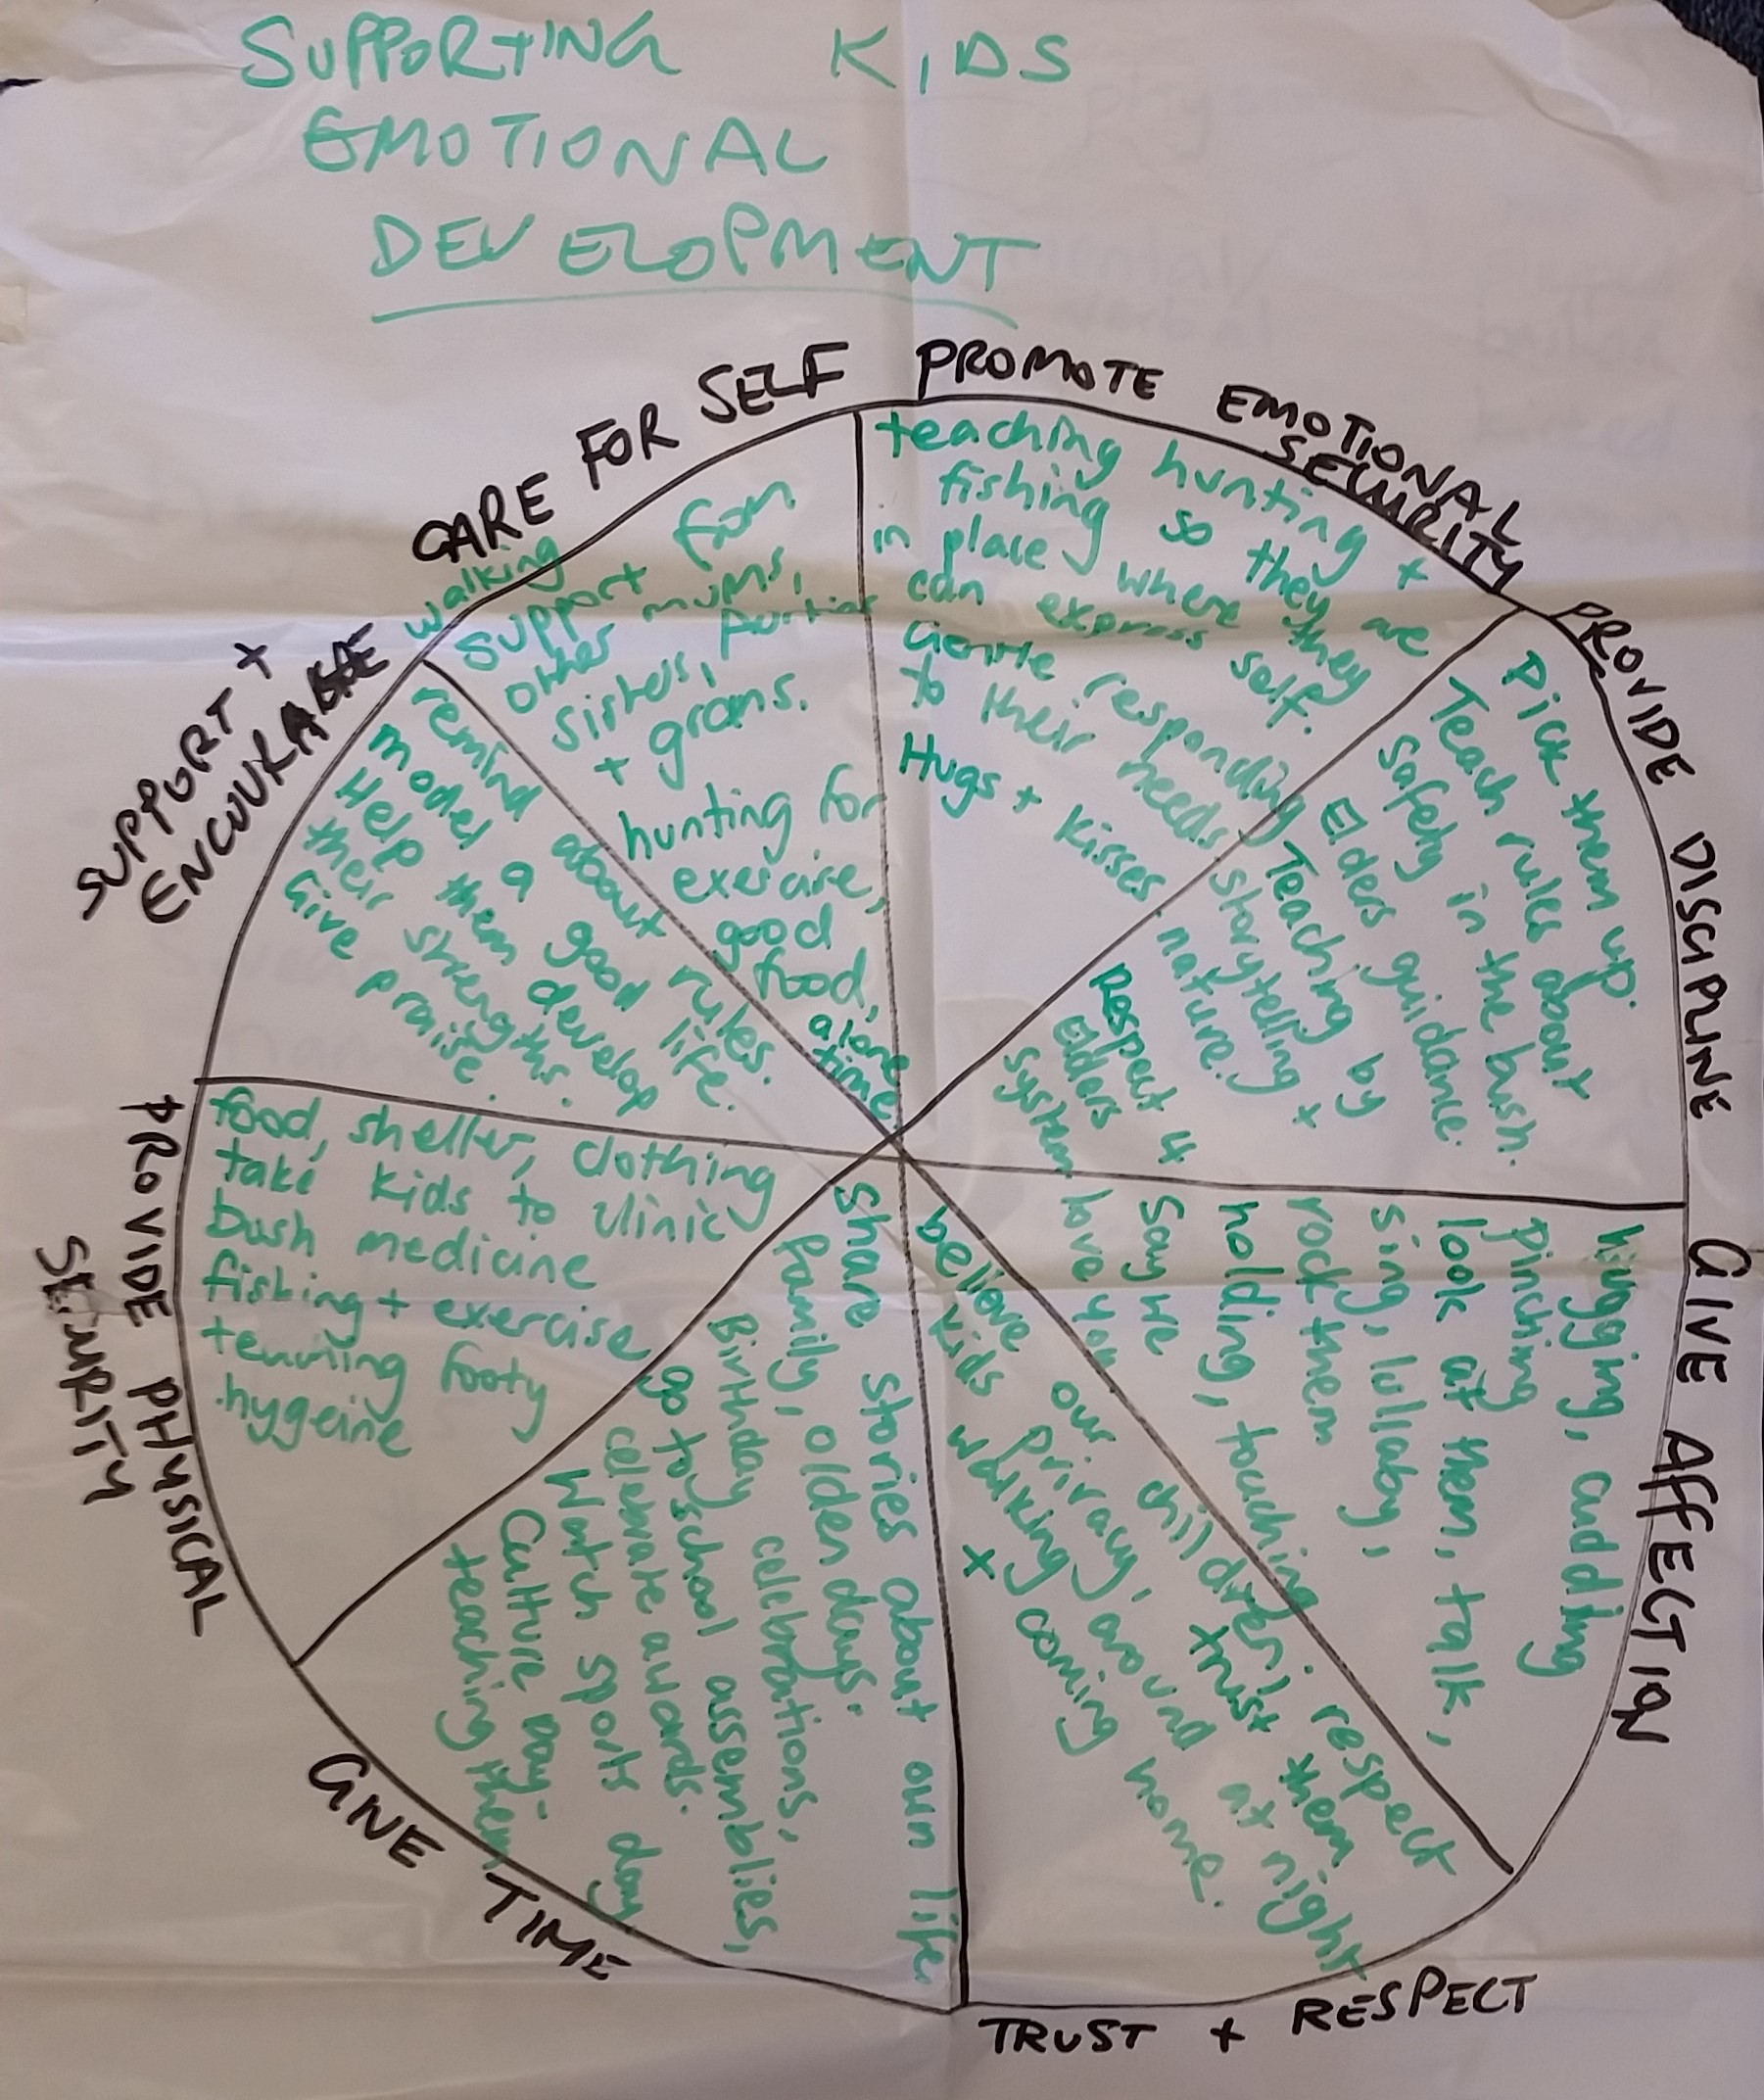 SUPPORTING KIDS
EMOTIONAL
DEVELOPMENT
PROMOTE EMOTIONAL
SECURITY
teaching hunting +
fishing so they are
in place where they
can express self.
Gentle responding
to their needs
Hugs + kisses
PROVIDE DISCIPLINE
Pick them up.
Teach rules about
safety in the bush.
Elders guidance.
Teaching by
storytelling +
nature.
Respect 4
Elders
system
GIVE AFFECTION
hugging, cuddling
pinching
look at them, talk,
sing, lullaby,
rock them
holding, touching
Say we
love you
TRUST + RESPECT
believe our children. respect
kids privacy, trust them
walking around at night
x coming home.
GIVE TIME
share stories about own life
family, olden days.
Birthday celebrations,
go to school assemblies,
celebrate awards.
Watch sports day
Culture day -
teaching them
PROVIDE PHYSICAL
SECURITY
food, shelter, clothing
take kids to clinic
bush medicine
fishing + exercise
footy
hygeine
SUPPORT +
ENCOURAGE
remind about rules.
model a good life.
Help them develop
their strengths.
Give praise.
CARE FOR SELF
walking
support from
other mums,
sisters, Aunties
+ grans.
hunting for
exercise,
good
food,
alone
time